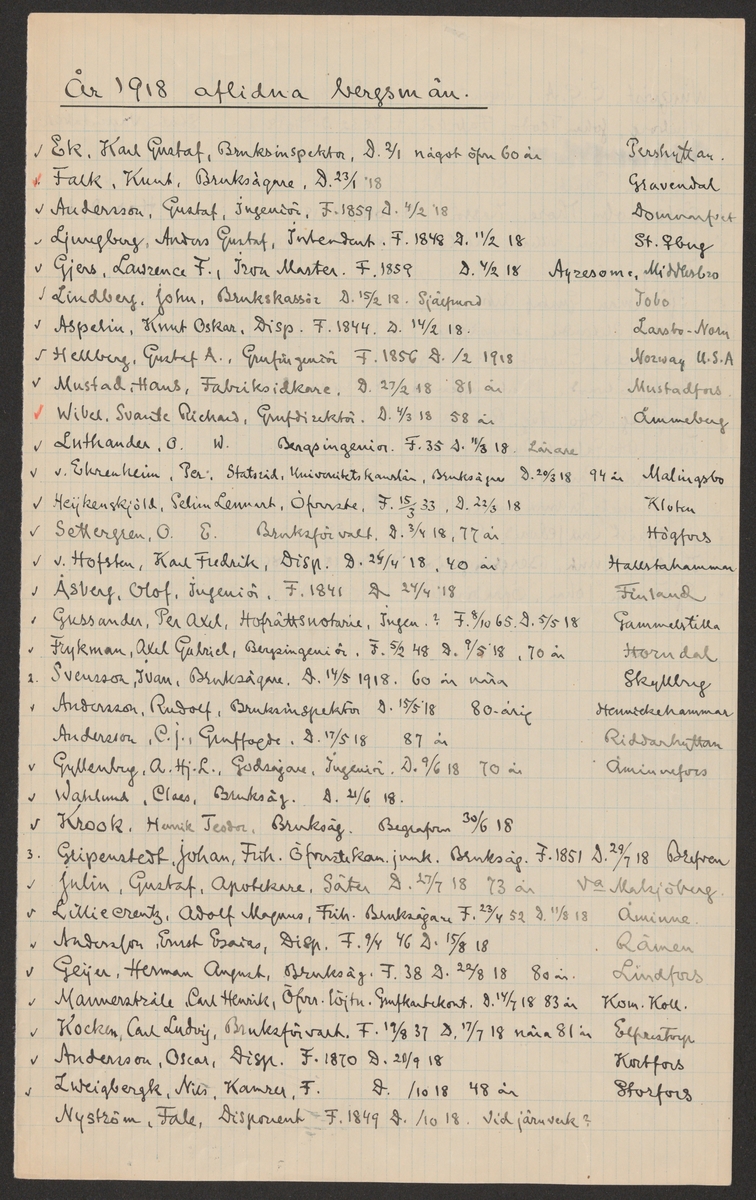 År 1918 aflidna bergsmän.
✓ Ek, Karl Gustaf, Bruksinspektor, D. 2/1 något öfver 60 år Pershyttan.
Falk, Knut, Bruksägare, D. 23/1 '18 Gravendal
✓ Andersson, Gustaf, Ingeniör, F. 1859 D. 4/2 '18 Domnarfvet
✓ Ljungberg, Anders Gustaf, Intendent. F. 1848 D. 11/2 18
✓ Gjers, Lawrence F., Iron Master. F. 1859 D. 4/2 18 Ayresome, Middlesbro
✓ Lindberg, John, Brukskassör D. 15/2 18. Självmord Tobo
✓ Aspelin, Knut Oskar, Disp. F. 1844. D. 14/2 18. Larsbo-Norn
✓ Hellberg, Gustaf A., Grufingeniör F. 1856 D. /2 1918 Norway U.S.A
✓ Mustad, Hans, Fabriksidkare, D. 27/2 18 81 år Mustadfors.
✓ Wibel, Svante Richard, Grufdirektör. D. 4/3 18 58 år Åmmeberg
✓ Luthander, O. W. Bergsingeniör. F. 35 D. 11/3 18. Lärare
✓ v. Ehrenheim, Per, Statsråd, Universitetskanslär, Bruksägare D. 20/3 18 94 år Malingsbo
✓ Heijkenskjöld, Selim Lennart, Öfverste, F. 15/3 33, D. 22/3 18 Kloten
✓ Settergren, O. E. Bruksförvalt. D. 3/4 18, 77 år Högfors
✓ v. Hofsten, Karl Fredrik, Disp. D. 26/4 '18, 40 år Hallstahammar
✓ Åsberg, Olof, Ingeniör, F. 1841 D 24/4 '18 Finland
✓ Gussander, Per Axel, Hofrättsnotarie, Ingen.? F. 8/10 65. D. 5/5 18 Gammelstilla
✓ Frykman, Axel Gabriel, Bergsingeniör. F. 5/2 48 D. 9/5 '18, 70 år Horndal
2. Svensson, Ivan, Bruksägare. D. 14/5 1918. 60 år nära Skyllbrg
✓ Andersson, Rudolf, Bruksinspektör D. 15/5 '18 80-årig Hennickehammar
Andersson, C. J., Gruffogde. D. 17/5 18 87 år Riddarhyttan
✓ Gyllenberg, A. Hj. L., Godsägare, Ingeniör. D. 9/6 18 70 år Åminnefors
✓ Wahlund, Claes, Bruksäg. D. 21/6 18.
✓ Krook, Henrik Teodor, Bruksäg. Begrafven 30/6 18
3. Gripenstedt, Johan, Frih. Öfverstekam.junk. Bruksäg. F. 1851 D. 29/7 18 Brefven
✓ Julin, Gustaf, Apotekare, Säter D. 27/7 18 73 år Va
✓ Lilliecreutz, Adolf Magnus, Frih. Bruksägare F. 23/4 52 D. 11/8 18 Åminne.
✓ Andersson, Ernst Esaias, Disp. F. 9/4 46 D. 15/8 18 Rämen
✓ Geijer, Herman August, Bruksäg. F. 38 D. 22/8 18 80 år. Lindfors
✓ Mannerstråle, Carl Henrik, Öfver. löjtn. Grufkartekont. D. 14/7 18 83 år Kom. Koll.
✓ Kocken, Carl Ludvig, Bruksförvalt. F. 19/8 37 D. 17/7 18 nära 81 år Elfvestorp
✓ Andersson, Oscar, Disp. F. 1870 D. 20/9 18 Kortfors
✓ Zweigbergk, Nils, Kamrer, F. D. /10 18 48 år Storfors
Nyström, Fale, Disponent F. 1849 D. /10 18. Vid järnverk?